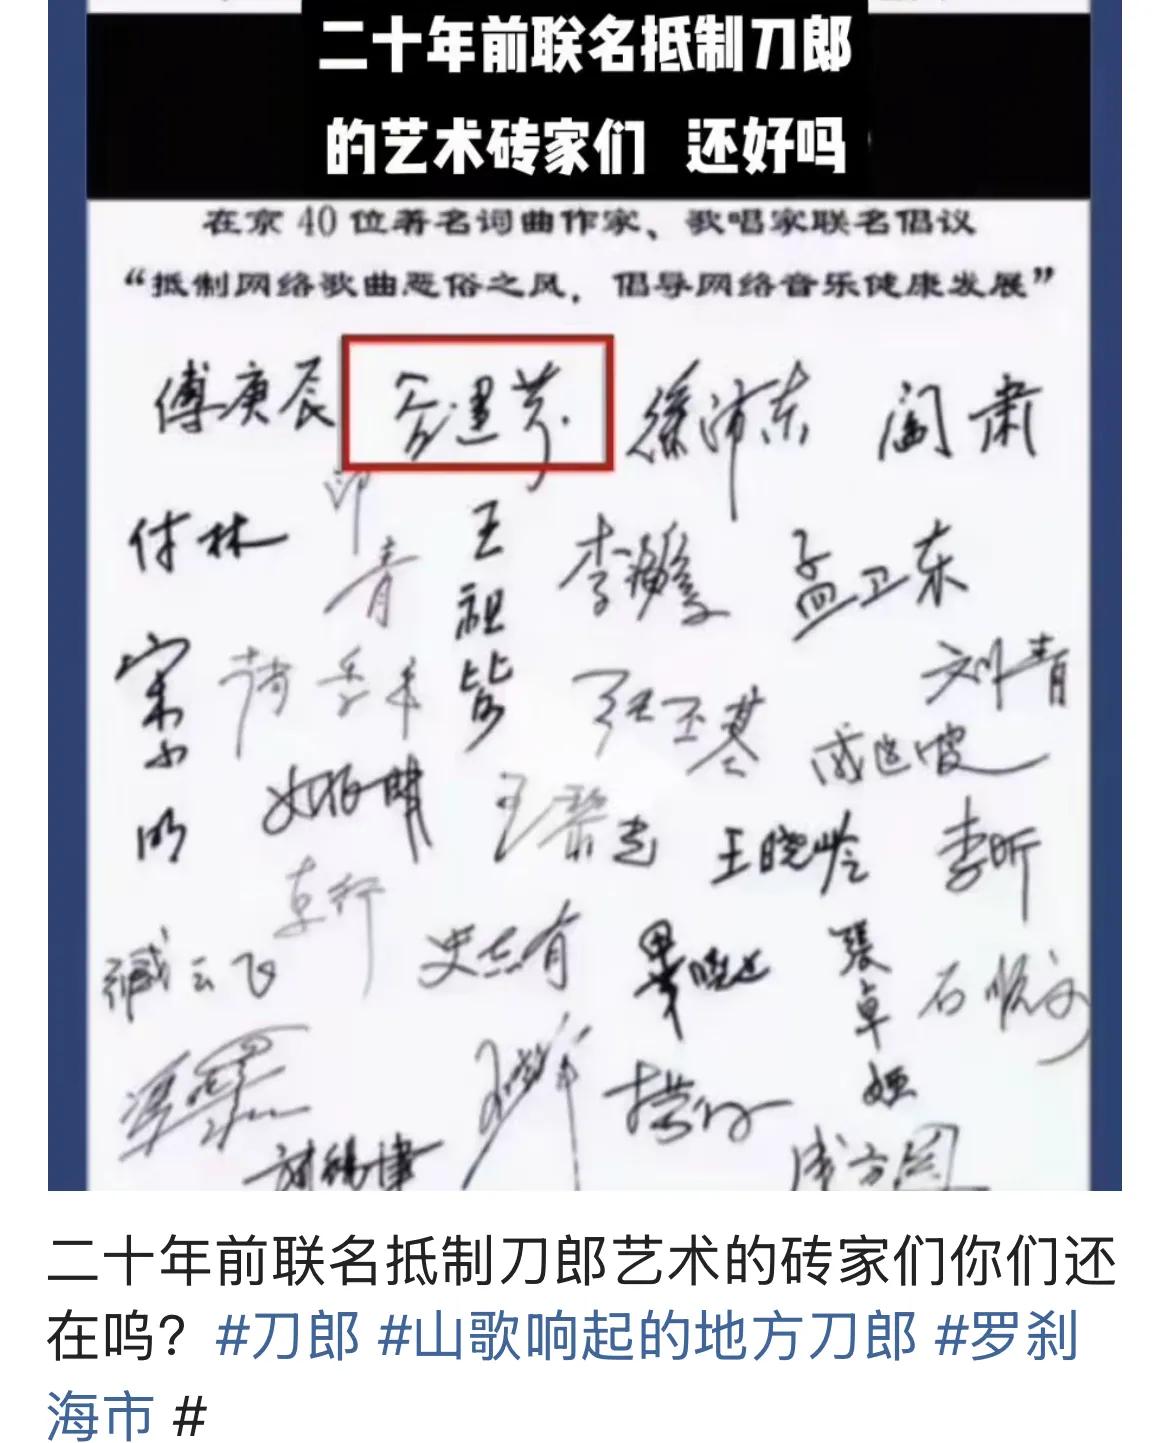 二十年前联名抵制刀郎
的艺术砖家们 还好吗
在京40位著名词曲作家、歌唱家联名倡议
“抵制网络歌曲恶俗之风，倡导网络音乐健康发展”
傅庚辰 谷建芬 徐沛东 阎肃
付林 印青 王祖皆 李海鹰 孟卫东
宋小明 张丕基 戚建波 刘青
王黎光 王晓岭 李昕
卞留念
臧云飞 史志有 张卓娅 石顺义
成方圆
二十年前联名抵制刀郎艺术的砖家们你们还
在呜？#刀郎 #山歌响起的地方刀郎 #罗刹
海市 #